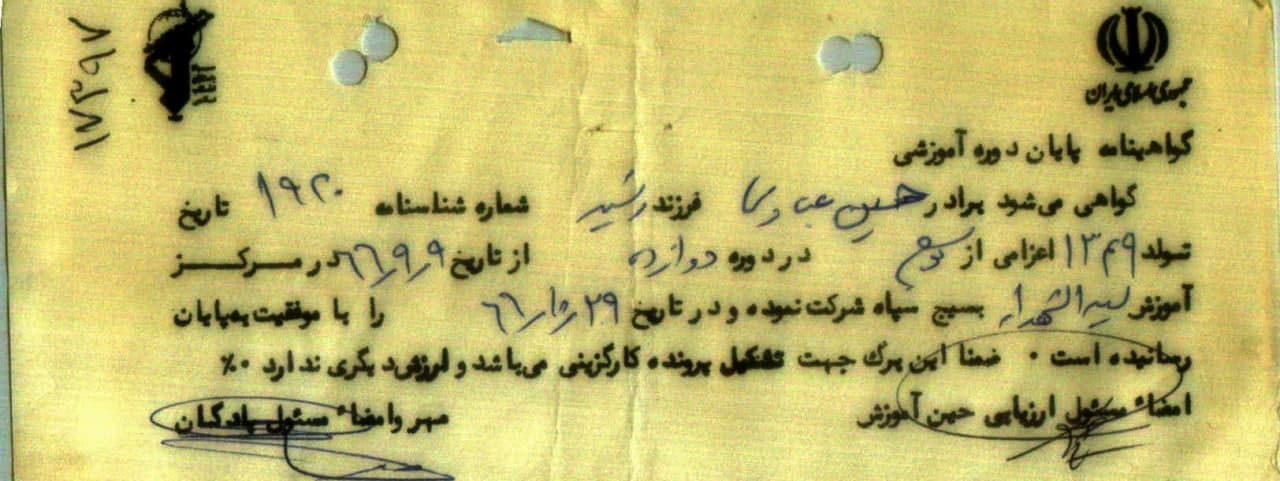 ۱۷۳۹۷
جمهوری اسلامی ایران
گواهینامه پایان دوره آموزشی
گواهی می شود برادر حسین فرزند رشید شماره شناسنامه ۱۹۲۰ تاریخ
تولد ۱۳۴۹ اعزامی از در دوره دوازده از تاریخ ۶۶/۹/۹ در مرکز
آموزش سیدالشهداء بسیج سپاه شرکت نموده و در تاریخ ۶۶/۱۰/۲۹ را با موفقیت به پایان
رسانیده است ۰ ضمنا این برگ جهت تشکیل پرونده کارگزینی می باشد و ارزش دیگری ندارد ۰٪
امضاء مسئول ارزیابی حین آموزش
مهر و امضاء مسئول پادگان